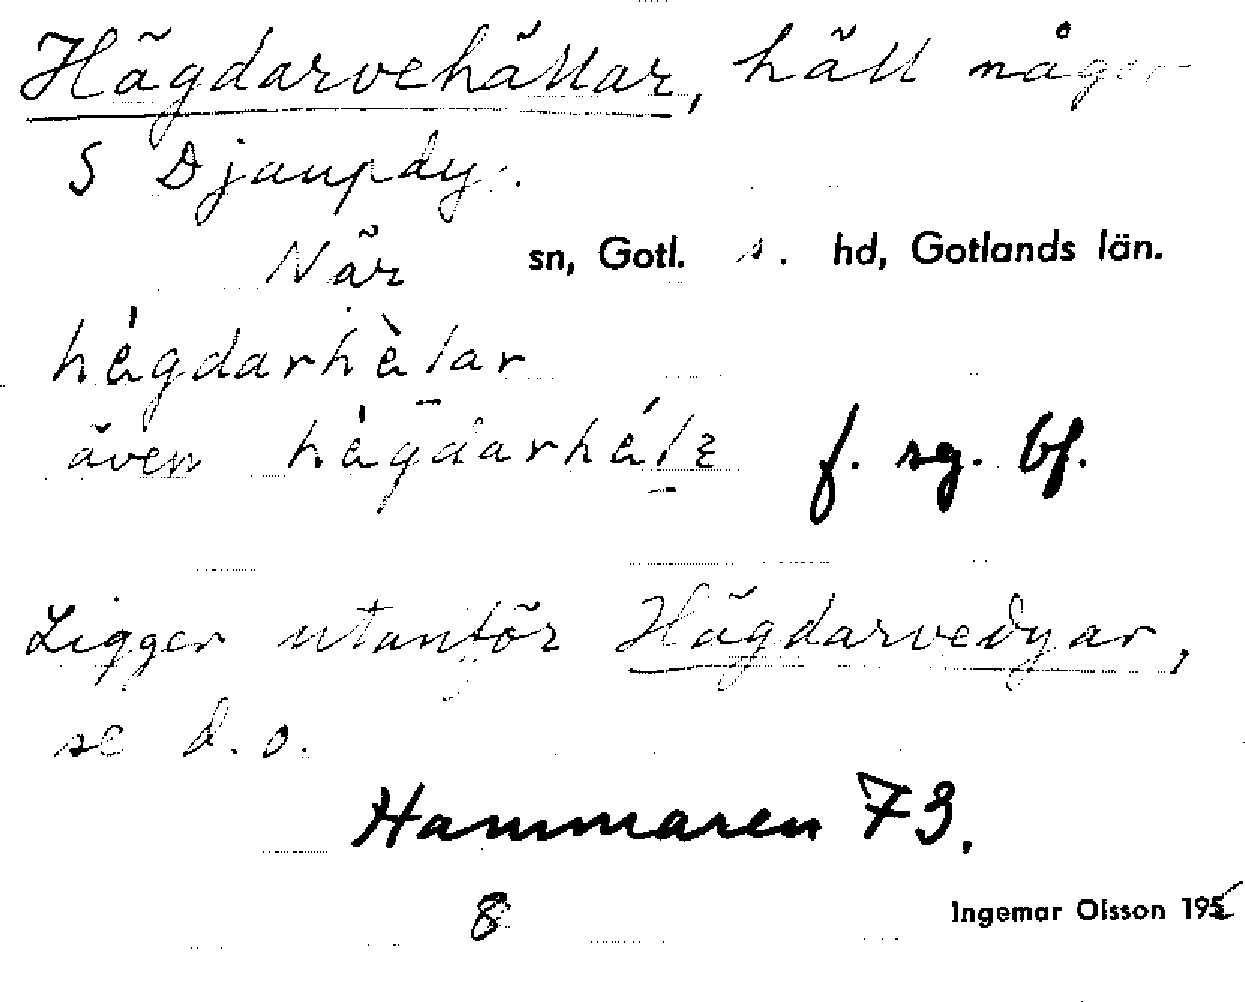 Hägdarvehällar, häll någor
S Djaupdy.
När sn, Gotl. s. hd, Gotlands län.
hę̀gdarhę̀lar
även hę̀gdarhę́lɛ f. sg. bf.
Ligger utanför Hägdarvedyar,
se d. o.
Hammaren 73.
8
Ingemar Olsson 195